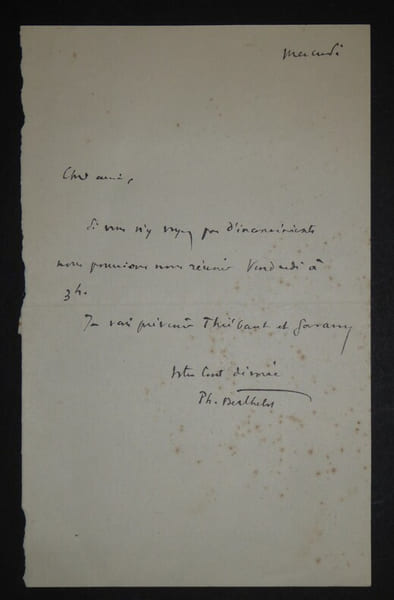 Mercredi
Cher ami,
Si vous n'y voyez pas d'inconvénients
nous pourrions nous réunir Vendredi à
3h.
Je vais prévenir Thiébaut et
Votre tout dévoué
Ph. Berthelot